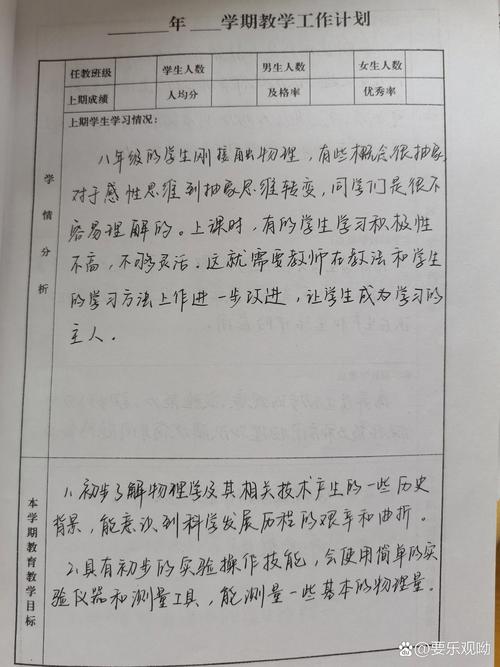 年 学期教学工作计划
任教班级 学生人数 男生人数 女生人数
上期成绩 人均分 及格率 优秀率
学情分析
上期学生学习情况：
八年级的学生刚接触物理，有些概念很抽象
对于感性思维到抽象思维转变，同学们是很不
容易理解的。上课时，有的学生学习积极性
不高，不够灵活。这就需要教师在教法和学生
的学习方法上作进一步改进，让学生成为学习的
主人。
本学期教育教学目标
1、初步了解物理学及其相关技术产生的一些历史
背景，能意识到科学发展历程的艰辛和曲折。
2、具有初步的实验操作技能，会使用简单的实
验仪器和测量工具，能测量一些基本的物理量。
@要乐观呦